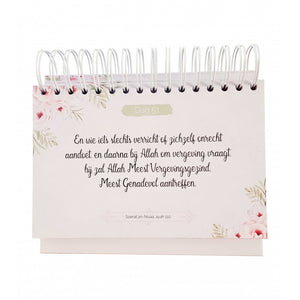 En wie iets slechts verricht of zichzelf onrecht
aandoet en daarna bij Allah om vergeving vraagt,
hij zal Allah Meest Vergevingsgezind,
Meest Genadevol aantreffen.